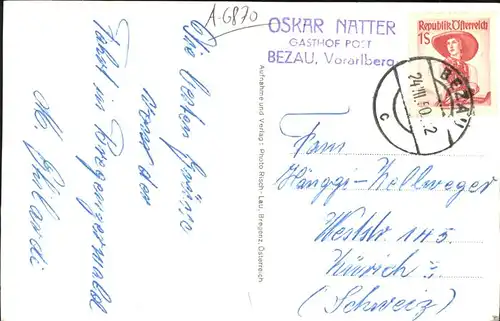 A-6870
OSKAR NATTER
GASTHOF POST
BEZAU, Vorarlberg
Republik Österreich
1S
BEZAU
24.III.60.-2
c
Die besten Grüsse
von der
Fahrt in Bregenzerwald
M.
Aufnahme und Verlag: Photo Risch-Lau, Bregenz, Österreich
Fam
Hänggi-Zellweger
Weststr. 145
Zürich
(Schweiz)